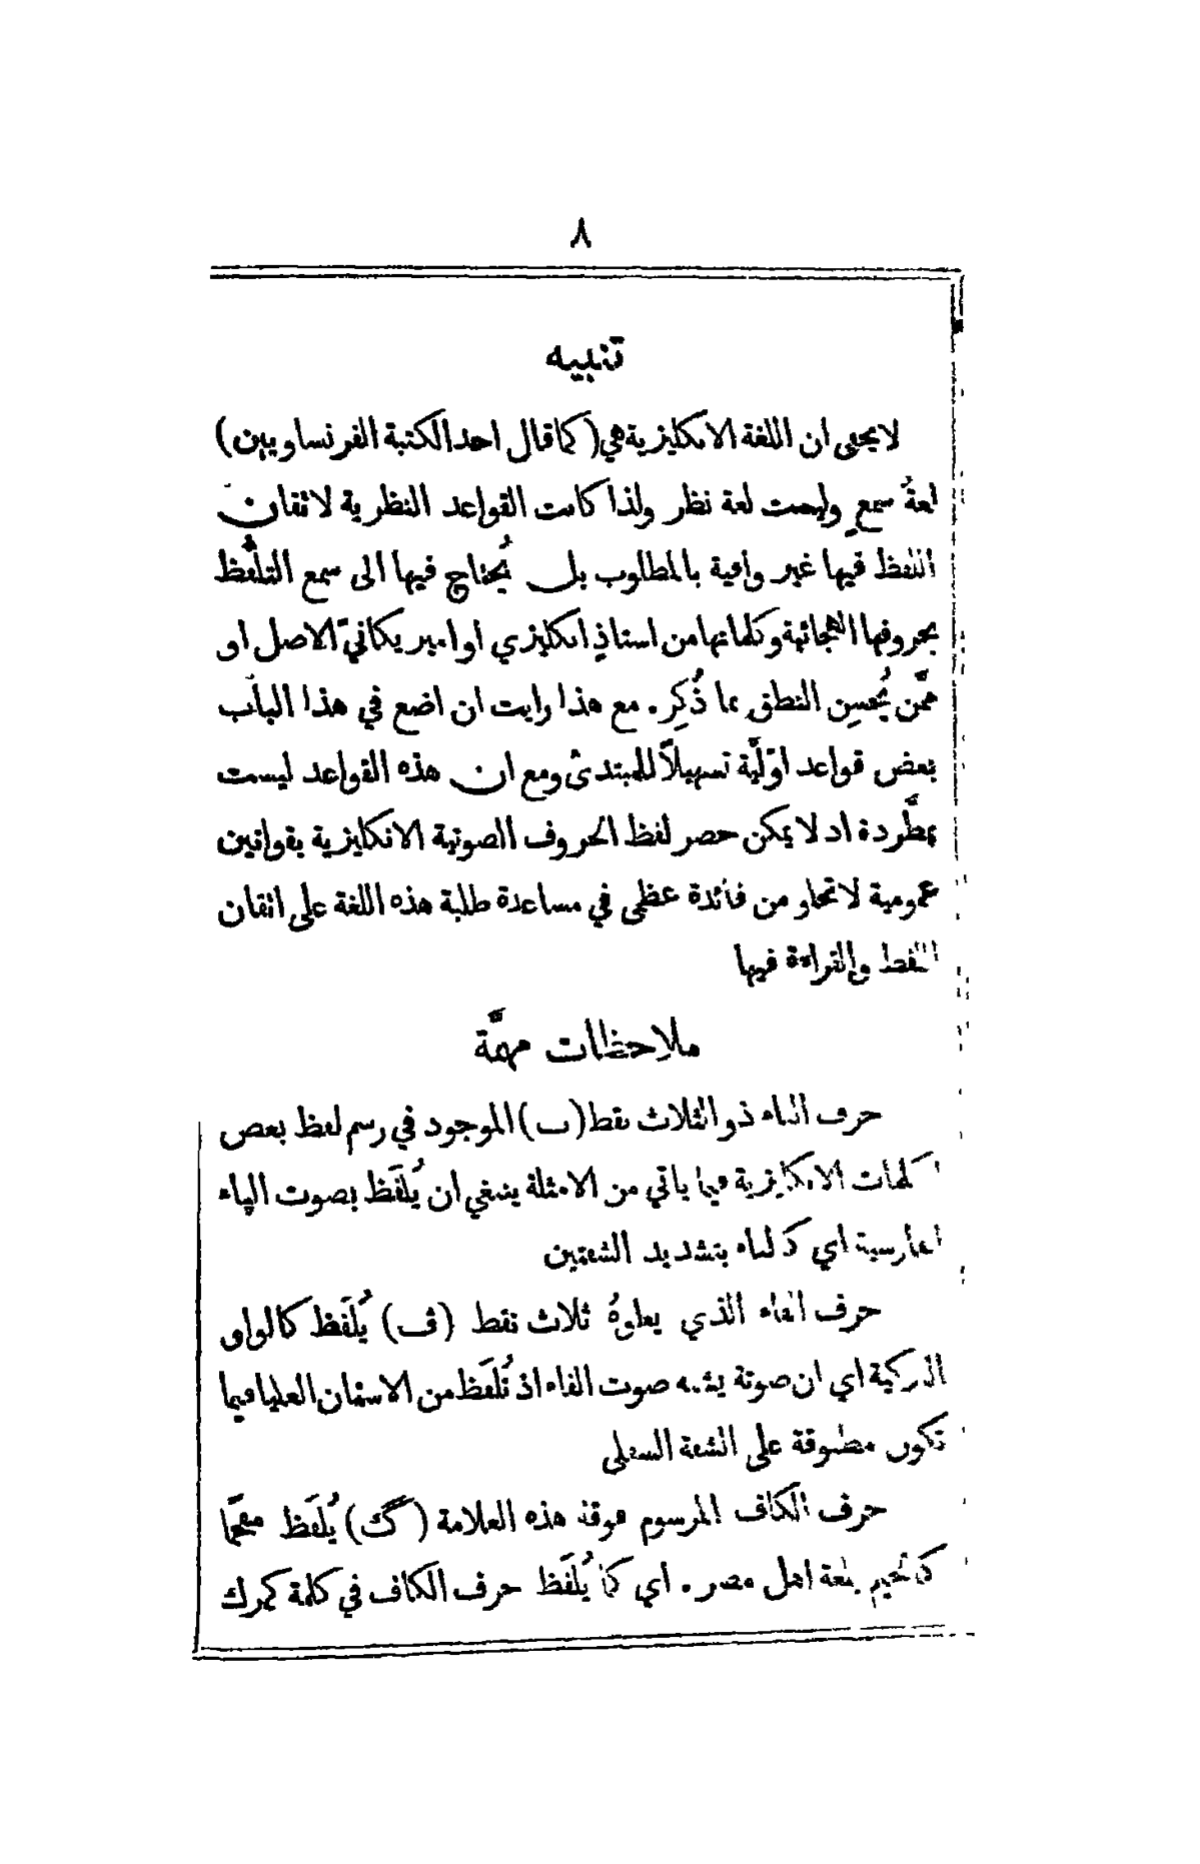 ٨
تنبيه
لا يخفى ان اللغة الانكليزية هي (كما قال احد الكتبة الفرنساويين)
لغةُ سمعٍ وليست لغة نظر ولذا كانت القواعد النظرية لاتقان
اللفظ فيها غير وافية بالمطلوب بل يُحتاج فيها الى سمع التلفُّظ
بحروفها الهجائية وكلماتها من استاذٍ انكليزي او اميريكانيّ الاصل او
ممَّن يُحسِن النطق بما ذُكِر . مع هذا رايت ان اضع في هذا الباب
بعض قواعد اوّليَّة تسهيلاً للمبتدئ ومع ان هذه القواعد ليست
بمطَّردة اذ لا يمكن حصر لفظ الحروف الصوتية الانكليزية بقوانين
عمومية لا تخلو من فائدة عظمى في مساعدة طلبة هذه اللغة على اتقان
اللفظ والقراءة فيها
ملاحظات مهمَّة
حرف الباء ذو الثلاث نقط (پ) الموجود في رسم لفظ بعض
الكلمات الانكليزية فيما ياتي من الامثلة ينبغي ان يُلفَظ بصوت الپاء
الفارسية اي كالباء بتشديد الشفتين
حرف الفاء الذي يعلوهُ ثلاث نقط (ڤ) يُلفَظ كالواو
التركية اي ان صوتة يشبه صوت الفاء اذ تُلفَظ من الاسنان العليا فيما
تكون مطبوقة على الشفة السفلى
حرف الكاف المرسوم فوقة هذه العلامة (گ) يُلفَظ مفخَّما
كالجيم بلغة اهل مصر . اي كما يُلفَظ حرف الكاف في كلمة كمرك